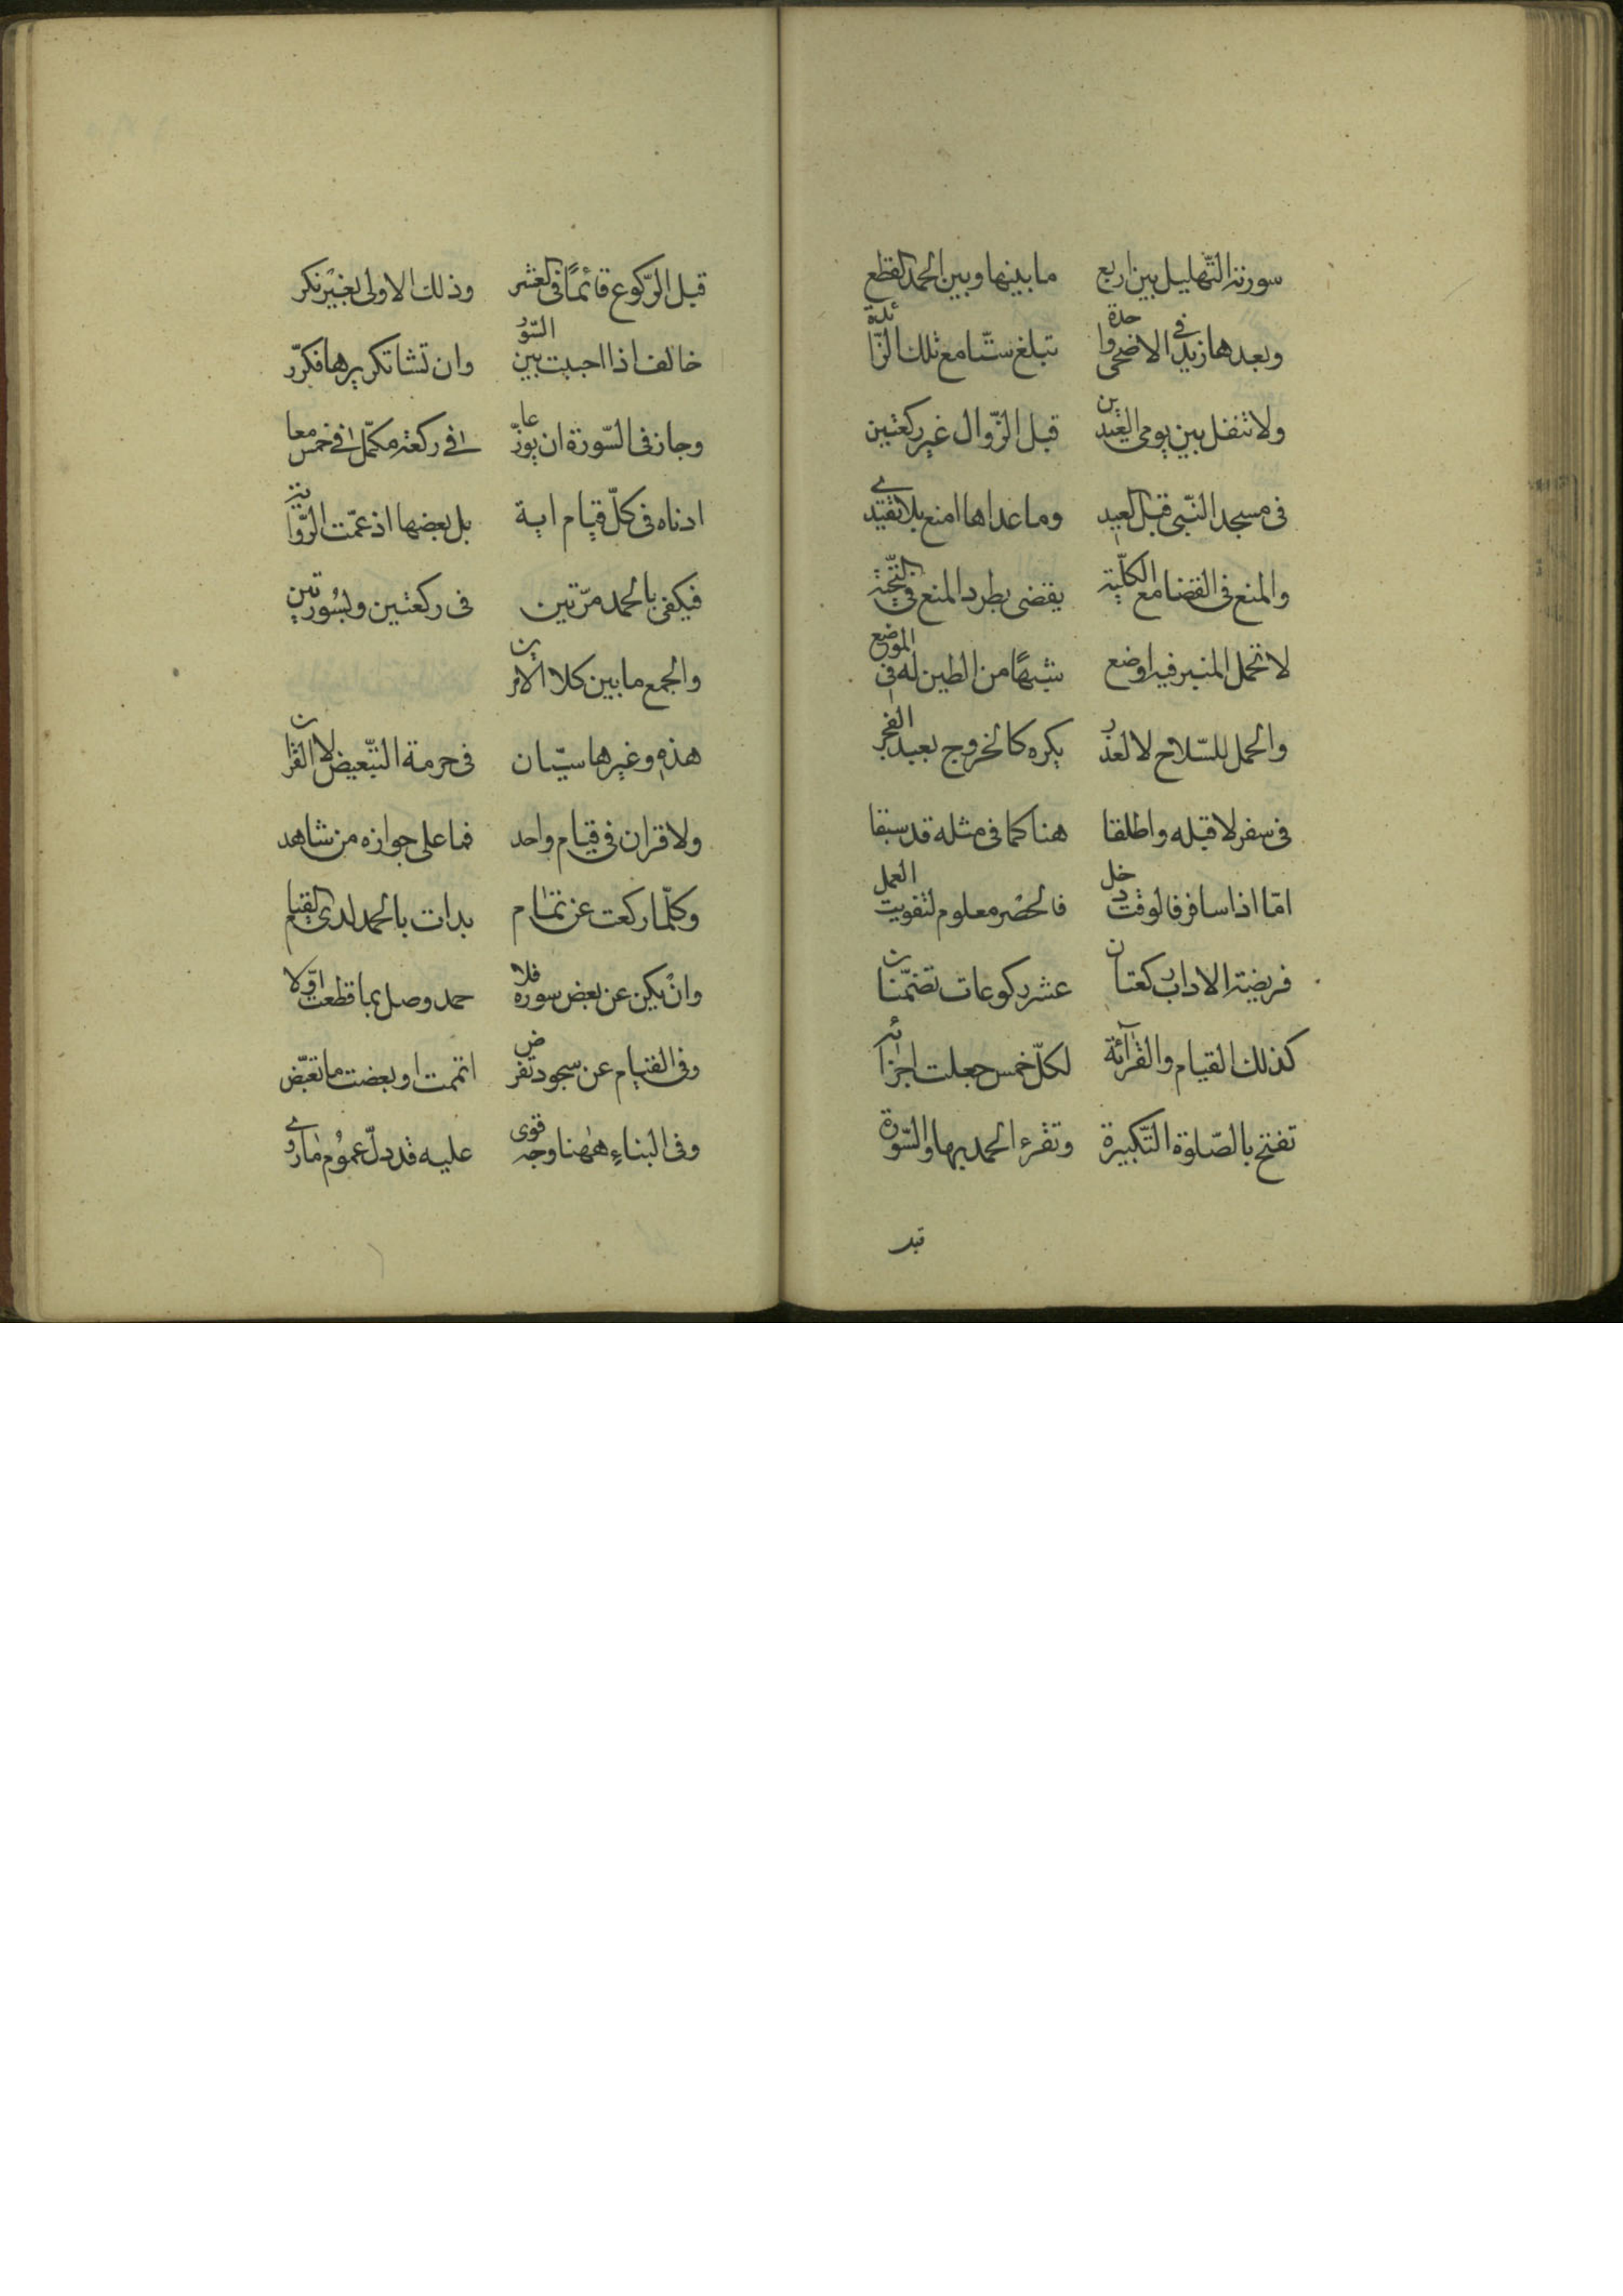 سورته التّهليل بين اربع ما بينها وبين الحمد القطع
وبعدها زيد في الاضحى واحدة تبلغ ستّا مع تلك الزّائدة
ولا تنفل بين يومي العيدين قبل الزّوال غير ركعتين
في مسجد النّبي قبل العيد وما عداها امنع بلا تقييد
والمنع في القضا مع الكلّية يقضى بطرد المنع في التّحيّة
لا تحمل المنبر فيه اوضع شبهًا من الطين له في الموضع
والحمل للسّلاح لا لعذر يكره كالخروج بعيد الفجر
في سفر لا قبله واطلقا هنا كما في مثله قد سبقا
امّا اذا سافر فالوقت دخل فالحضر معلوم لتفويت العمل
فريضة الاداب ركعتان عشر ركوعات تضمّنان
كذلك القيام والقرآئة لكلّ خمس جعلت اجزائه
تفتح بالصّلوة التّكبيرة وتقرء الحمد بها والسّورة
قبل
قبل الرّكوع قائمًا في العشر وذلك الاولى بغير نكر
خالف اذا احببت بين السّور وان تشا تكريرها فكرّر
وجاز في السّورة ان يوزّعا في ركعة مكمّل في خمس معا
ادناه في كلّ قيام اية بل بعضها اذ عمّت الرّواية
فيكفي بالحمد مرّتين في ركعتين وبسُورتين
والجمع ما بين كلا الامرين
هذه وغيرها سيّان في حرمة التّبعيض لا القران
ولا قران في قيام واحد فما على جوازه من شاهد
وكلّما ركعت عن تمام بدات بالحمد لدى القيام
وانْ يكن عن بعض سوره فلا حمد وصل بما قطعت اوّلا
وفي القيام عن سجود تفرض اتممت او بعضت ما تبعّض
وفي البناءِ ههنا وجه قوى عليه قد دلّ عمُوم ما روي